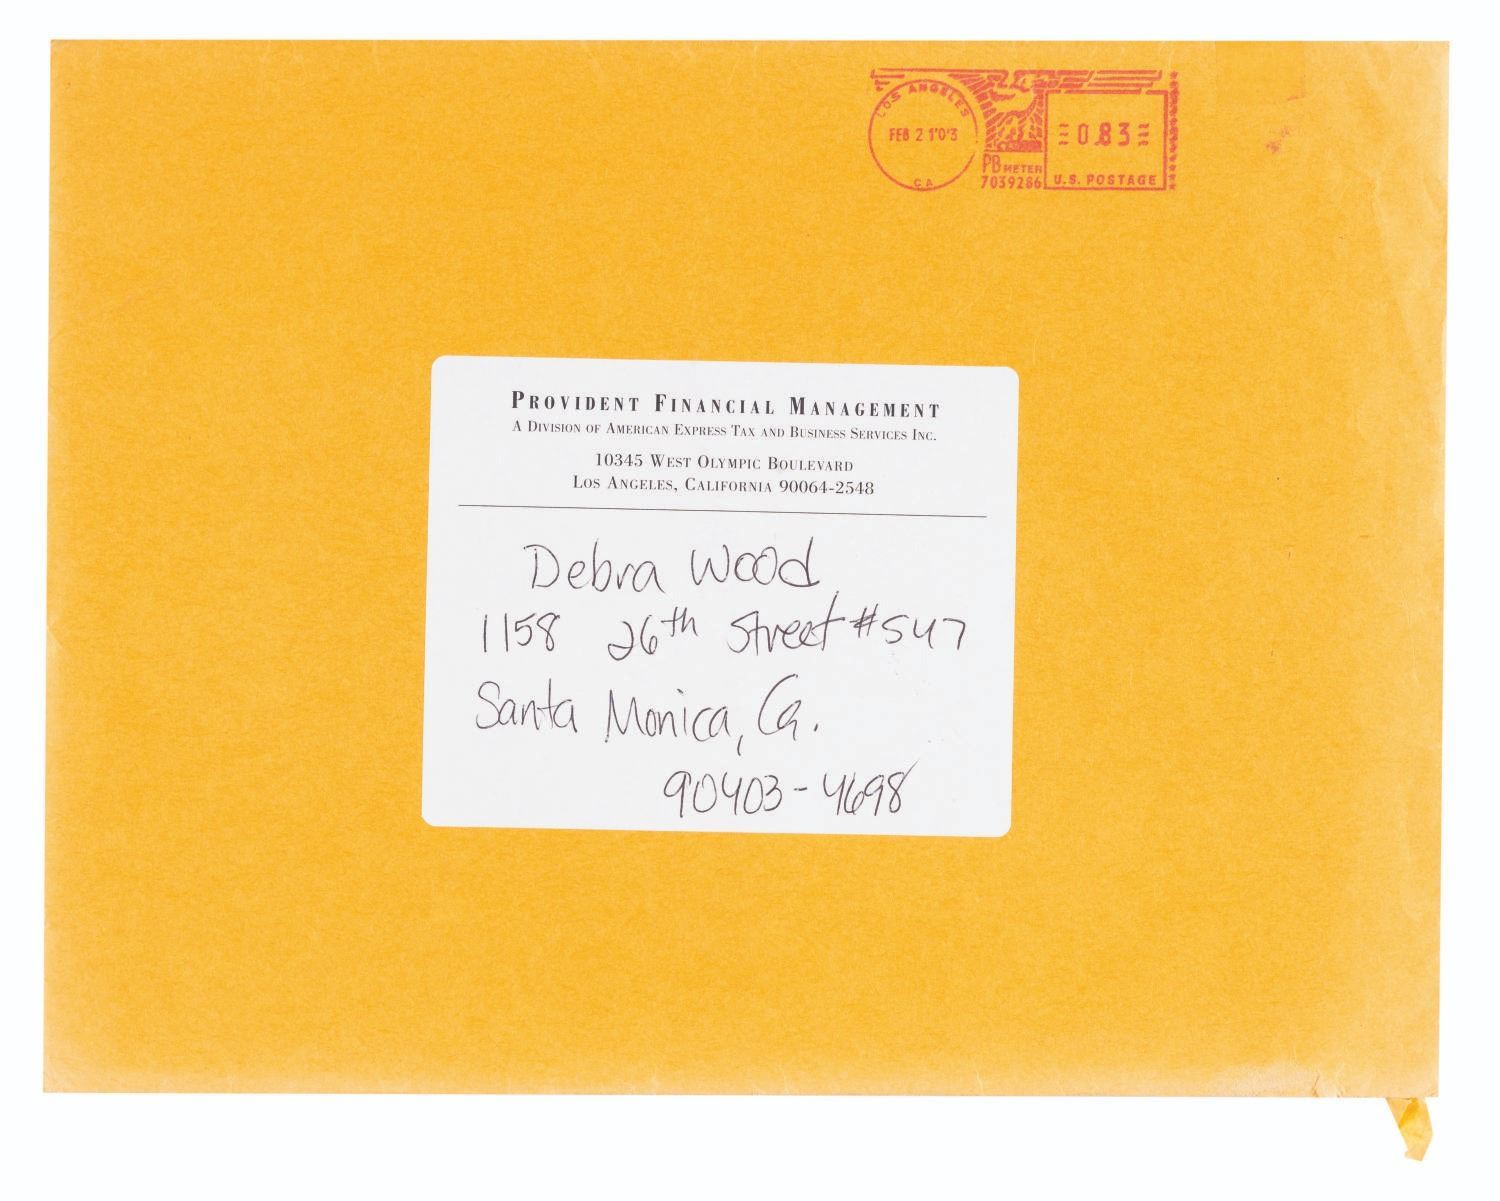 LOS ANGELES
FEB 21'03
CA
PB METER
7039286
0.83
U.S. POSTAGE
PROVIDENT FINANCIAL MANAGEMENT
A DIVISION OF AMERICAN EXPRESS TAX AND BUSINESS SERVICES INC.
10345 WEST OLYMPIC BOULEVARD
LOS ANGELES, CALIFORNIA 90064-2548
Debra Wood
1158 26th Street #547
Santa Monica, Ca.
90403-4698